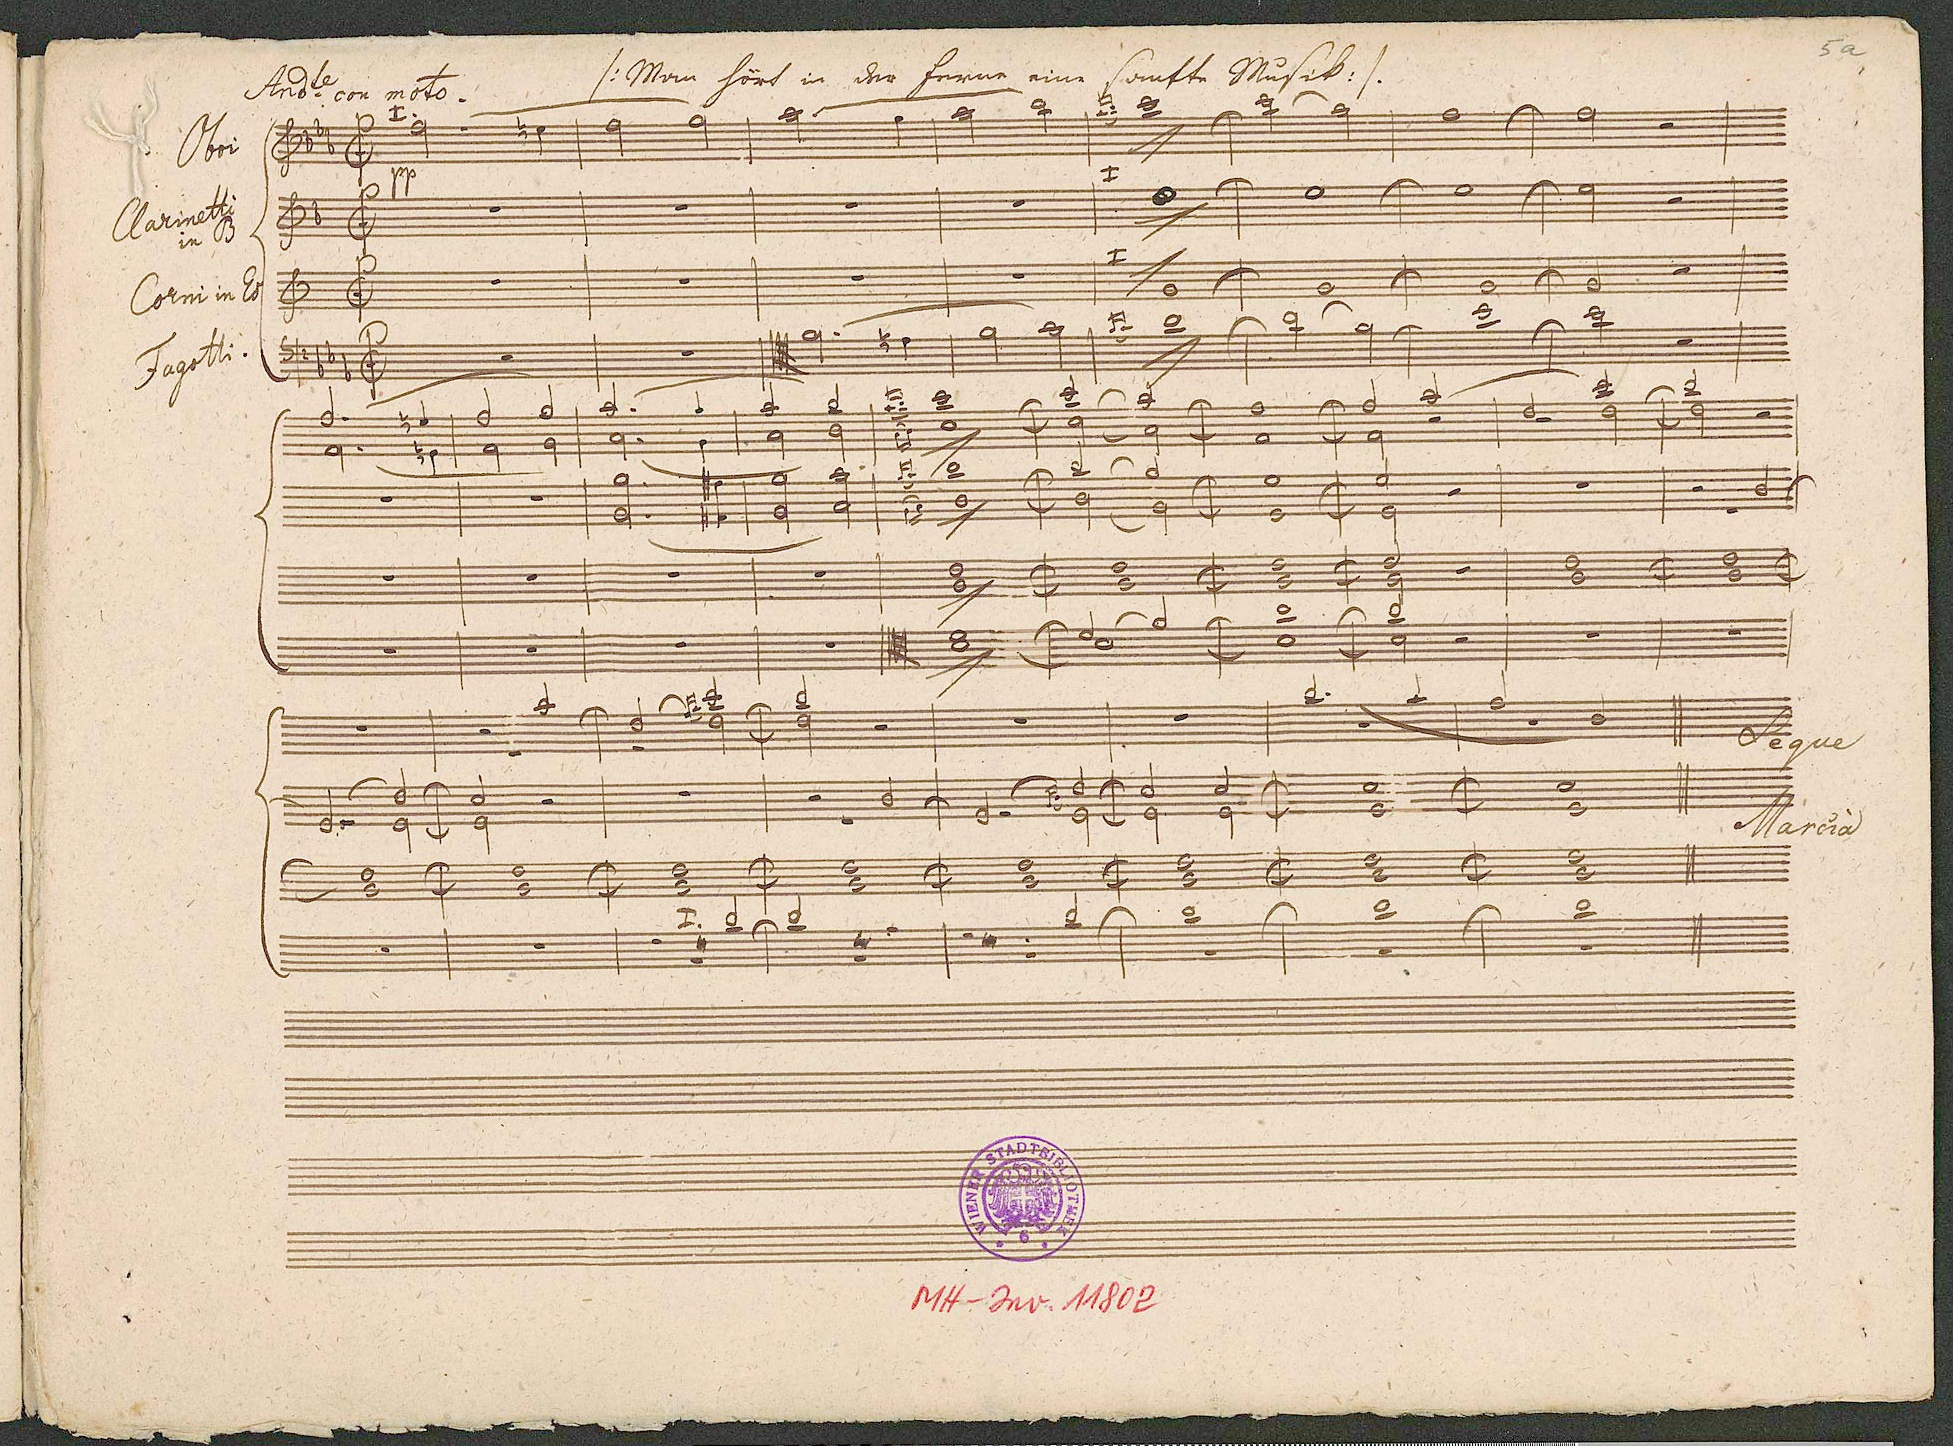 5a
Andte con moto.
/: Man hört in der Ferne eine sanfte Musik: /.
Oboi
I.
pp
Clarinetti
in B
I
Corni in Es
I
Fagotti.
Seque
I.
Marcia
WIENER STADTBIBLIOTHEK
6
MH-Inv. 11802